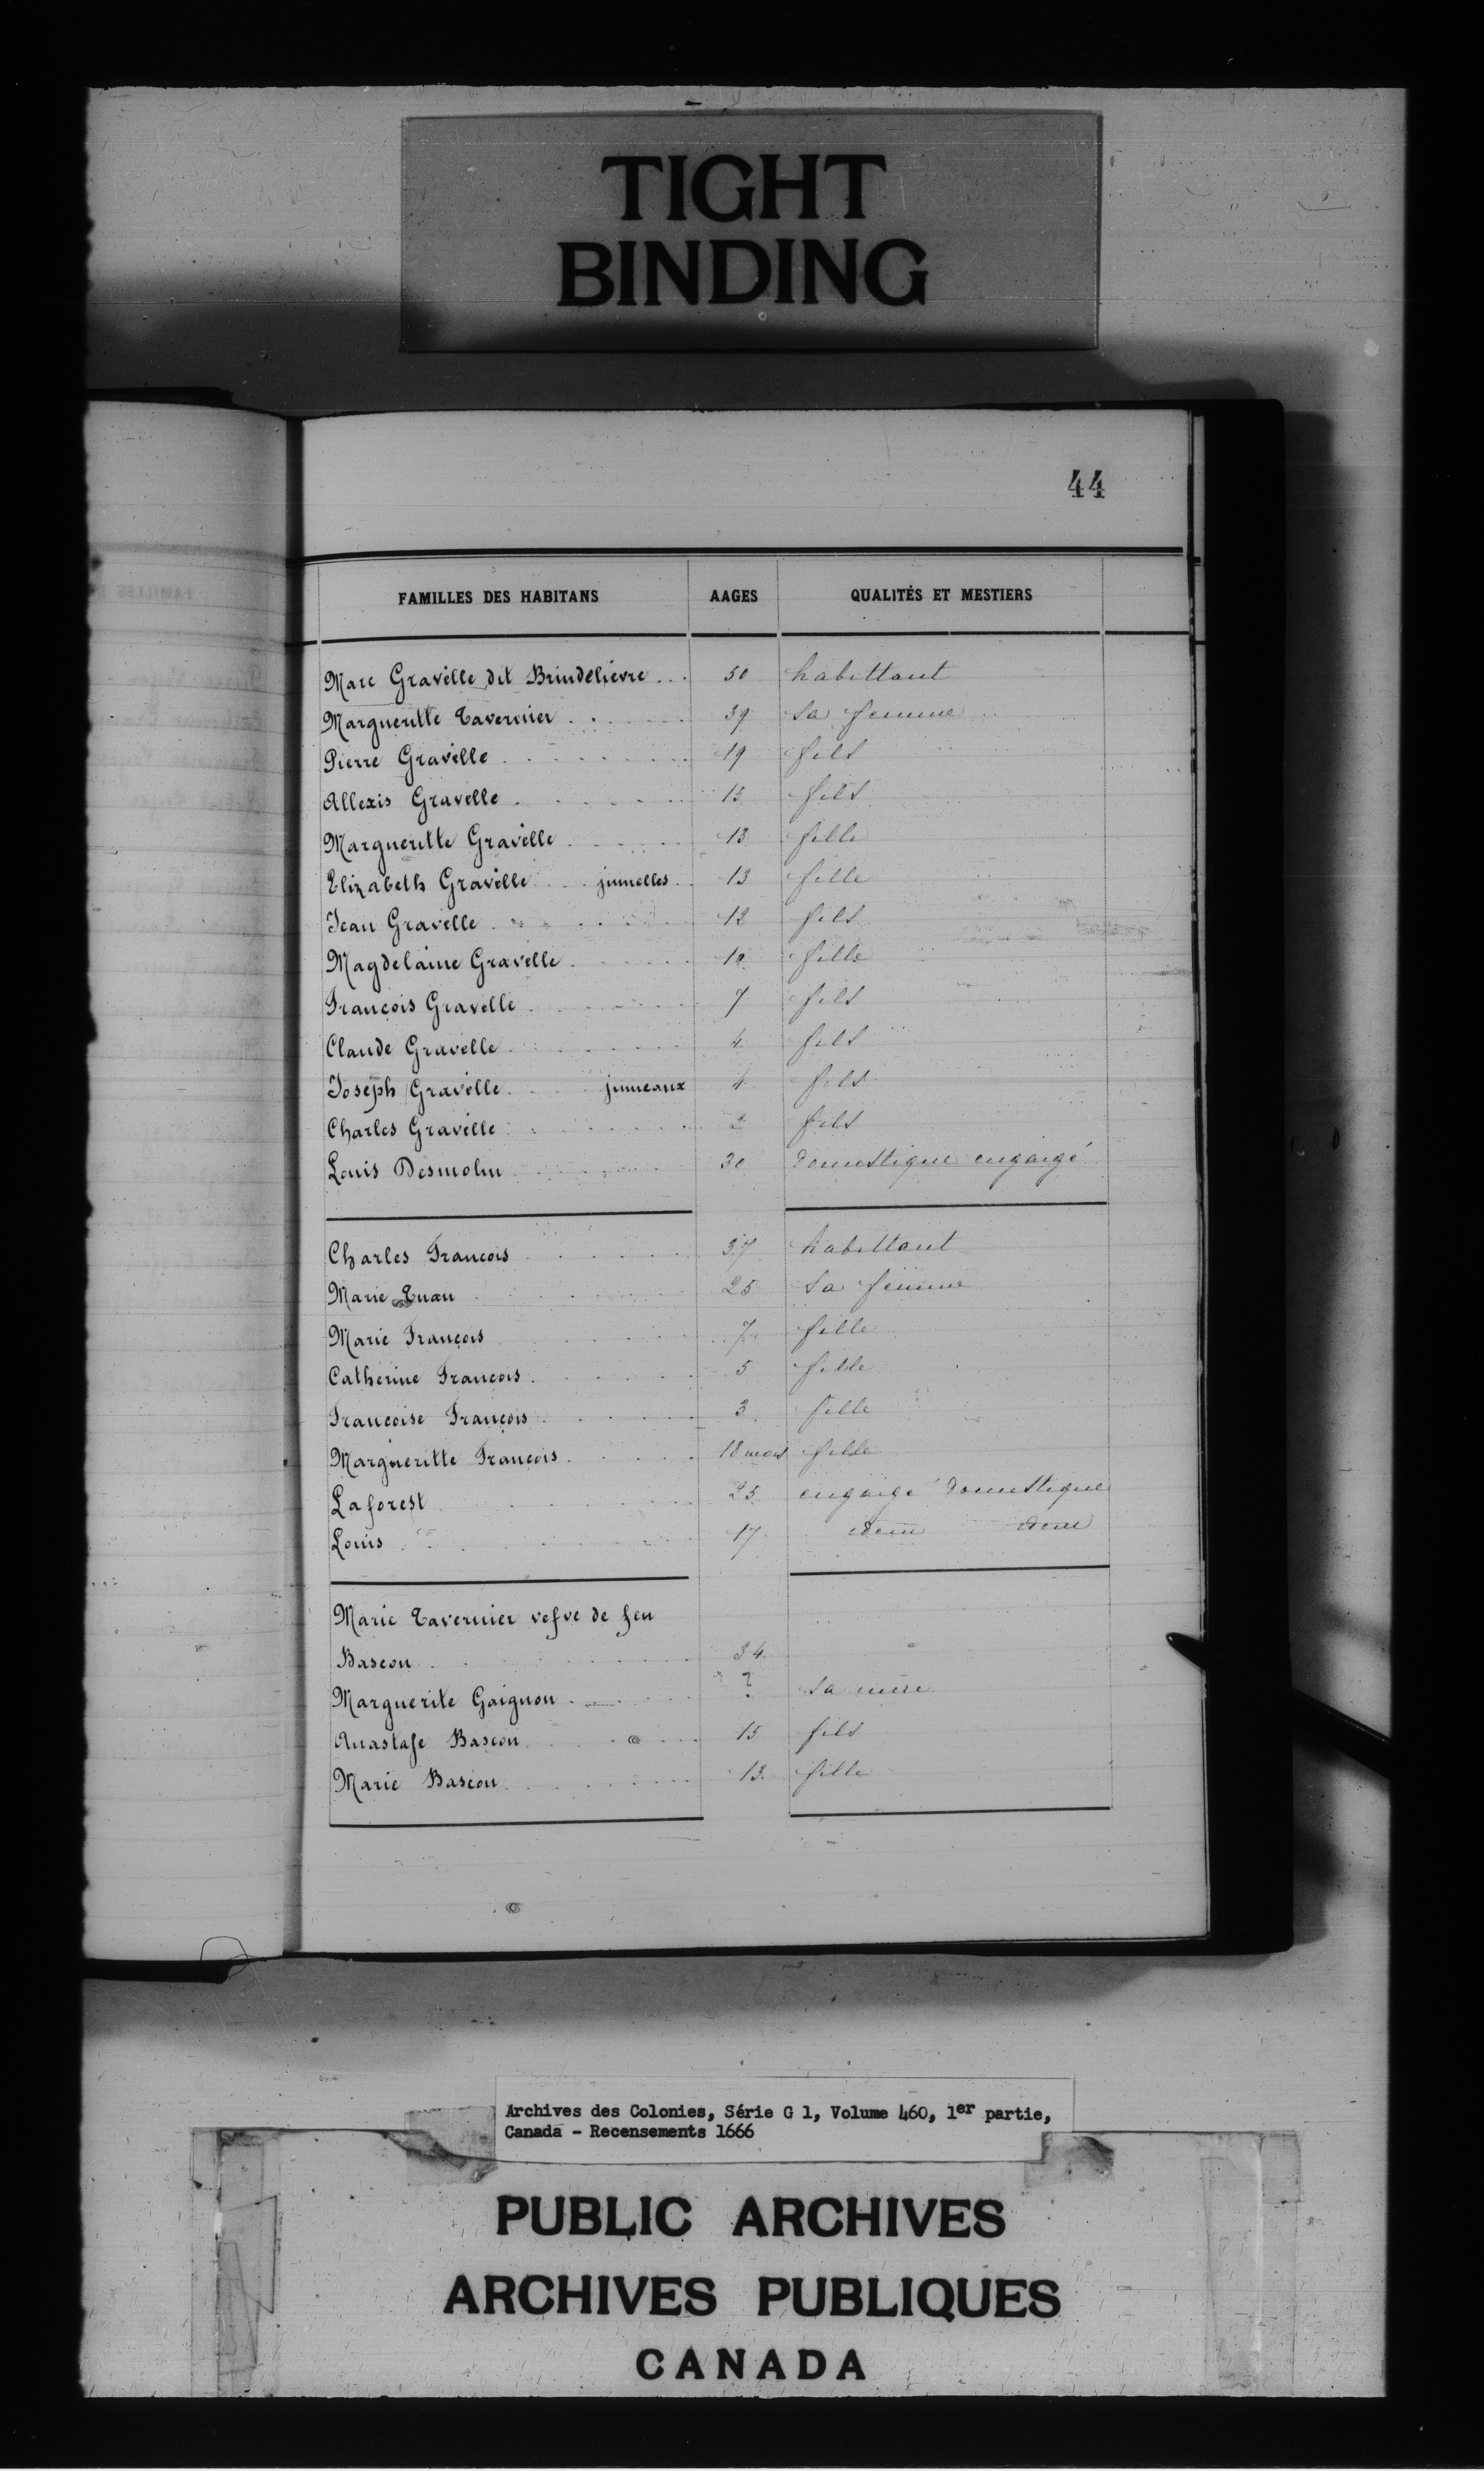 TIGHT
BINDING
44
FAMILLES DES HABITANS AAGES QUALITÉS ET MESTIERS
Marc Gravelle dit Brindelièvre 50 habittant
Margueritte Tavernier 39 sa femme
Pierre Gravelle 19 fils
Allexis Gravelle 15 fils
Margueritte Gravelle 13 fille
Elizabeth Gravelle jumelles 13 fille
Jean Gravelle 12 fils
Magdelaine Gravelle 10 fille
François Gravelle 7 fils
Claude Gravelle 4 fils
Joseph Gravelle jumeaux 4 fils
Charles Gravelle 2 fils
Louis Desmolin 30 domestique engaigé
Charles Francois 37 habittant
Marie 25 sa femme
Marie François 7 fille
Catherine Francois 5 fille
Francoise François 3 fille
Margueritte Francois 18 mois fille
Laforest 25 engaigé domestique
Louis 17 idem idem
Marie Tavernier vefve de feu
Bascon 34
Marguerite Gaignon ? sa mère
Anastase Bascon 15 fils
Marie Bascon 13 fille
Archives des Colonies, Série G 1, Volume 460, 1er partie,
Canada - Recensements 1666
PUBLIC ARCHIVES
ARCHIVES PUBLIQUES
CANADA